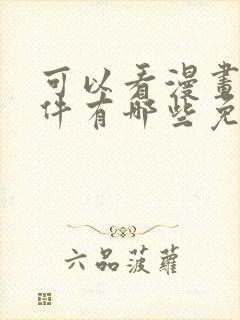 可以看漫畫
件有哪些免
六品菠蘿